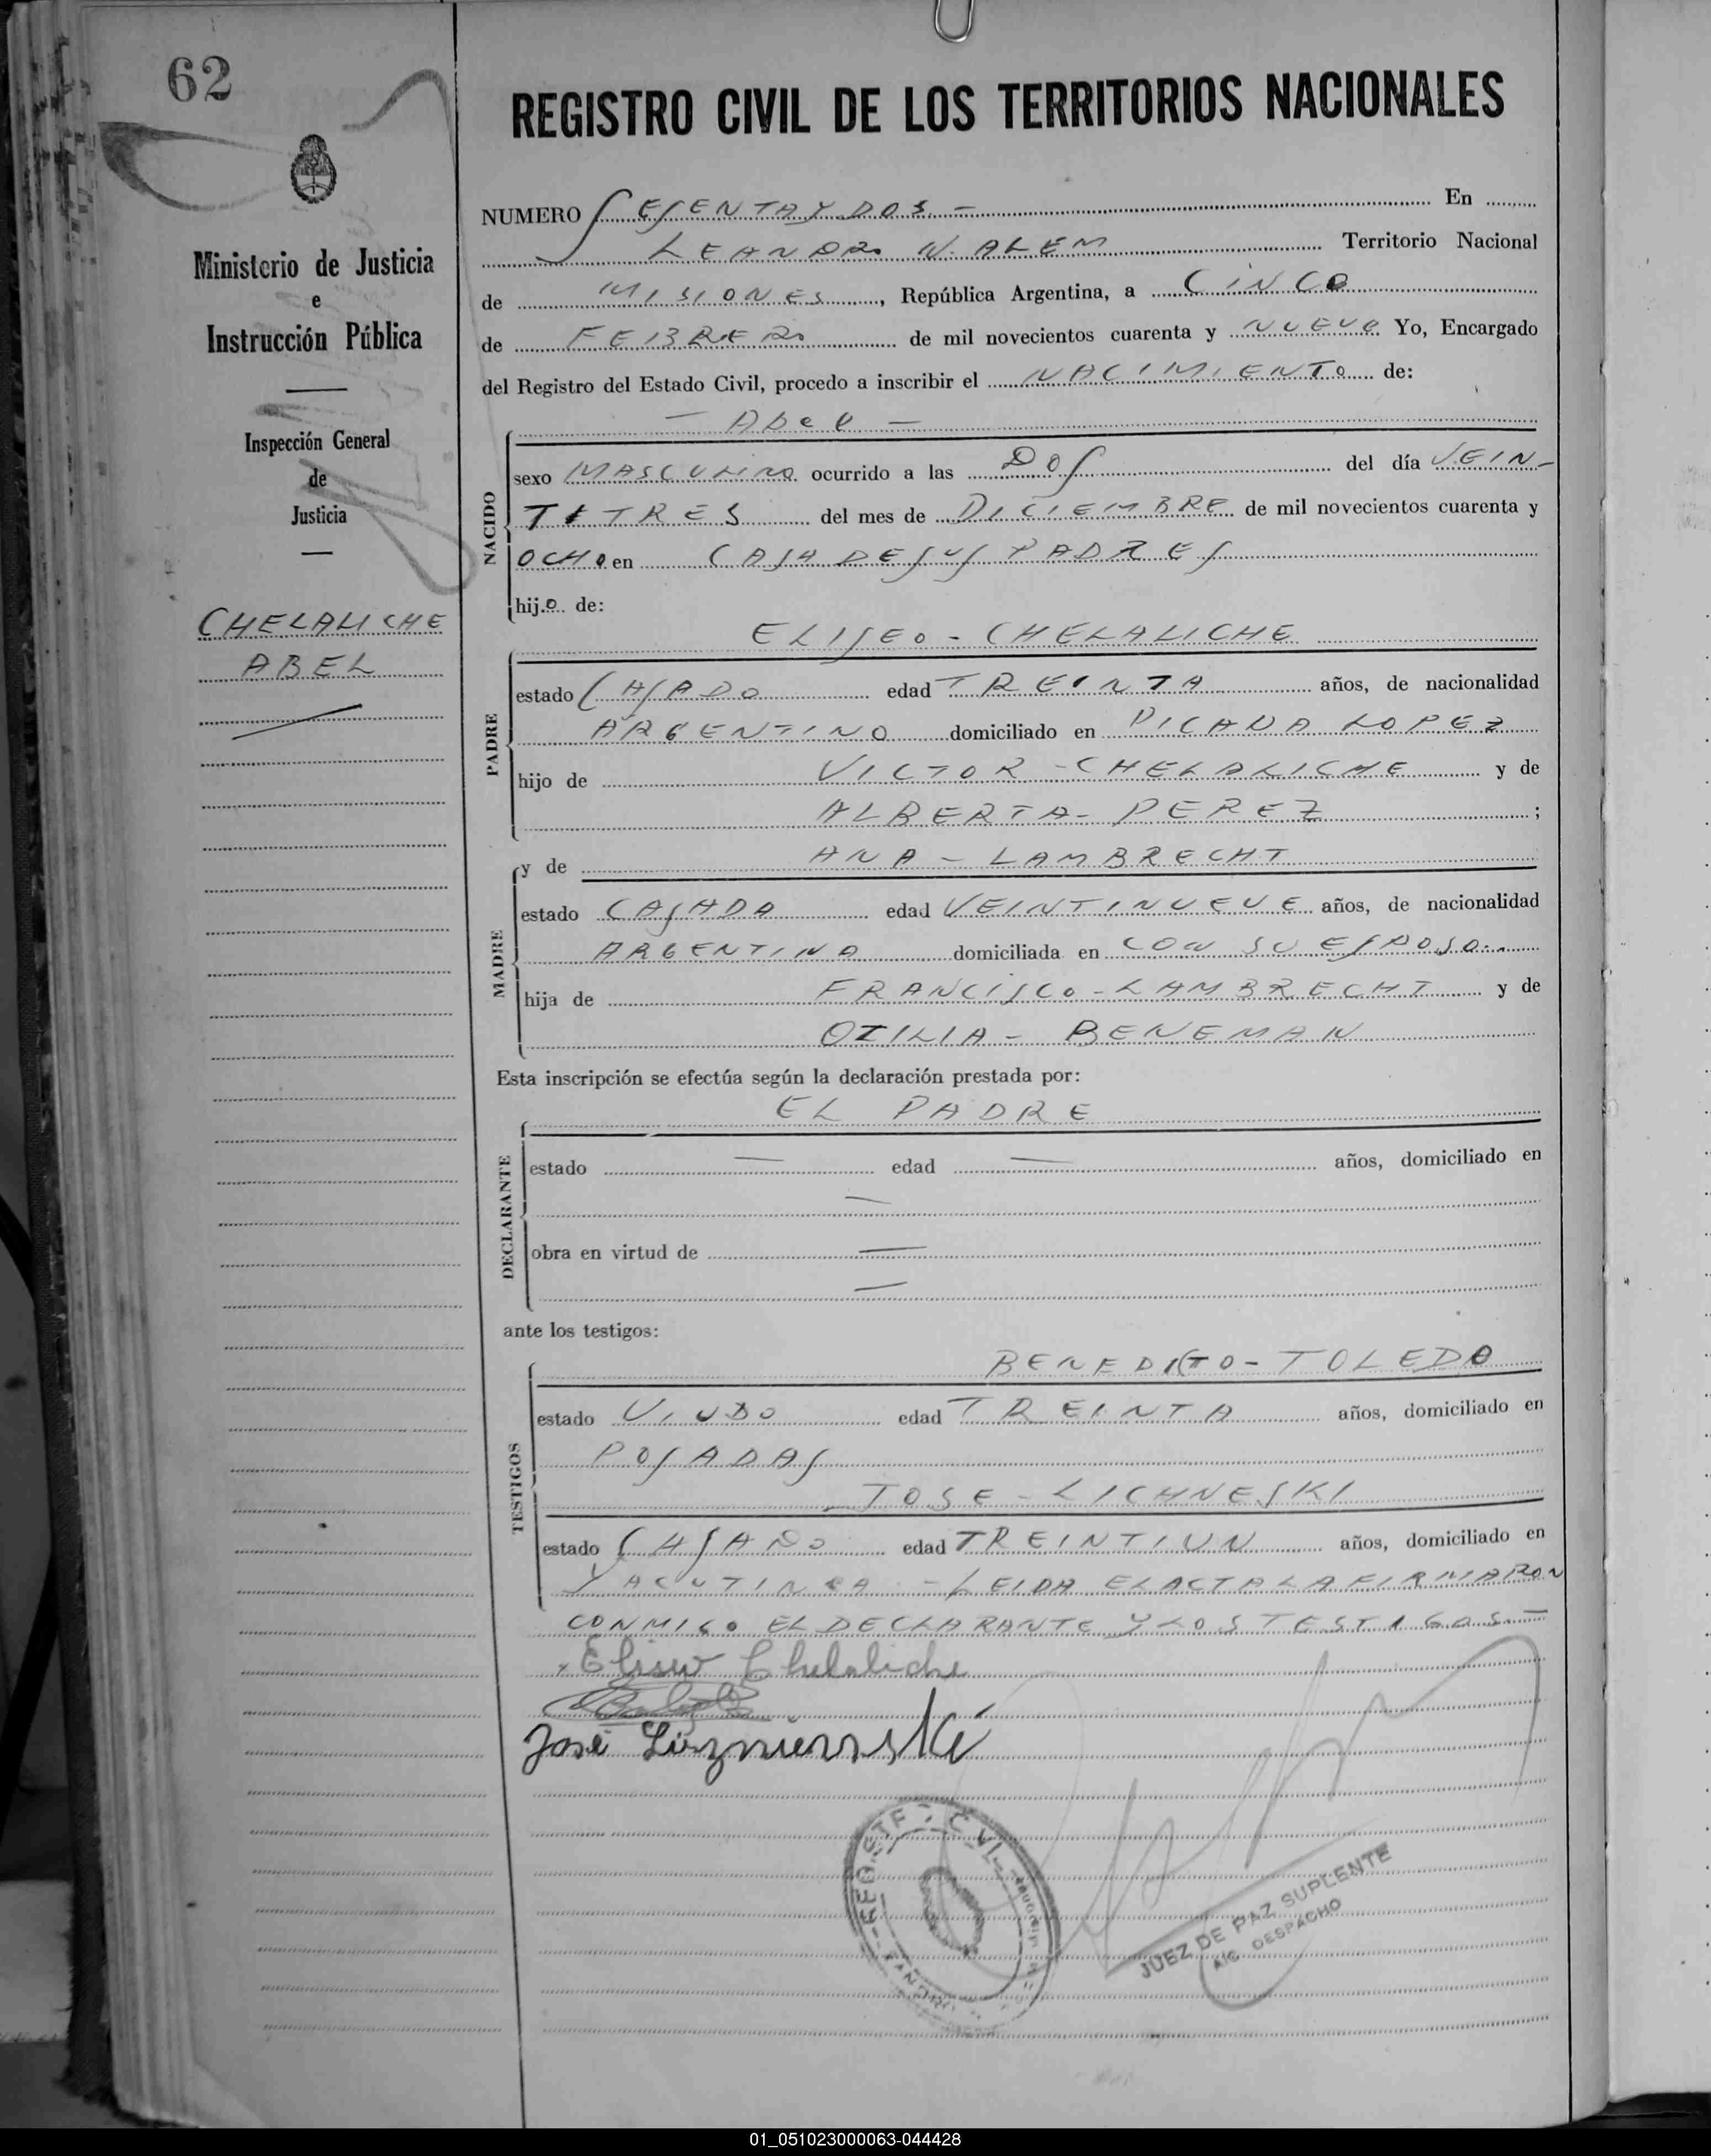 62
REGISTRO CIVIL DE LOS TERRITORIOS NACIONALES
Ministerio de Justicia
e
Instrucción Pública
Inspección General
de
Justicia
CHELALICHE
ABEL
NUMERO SESENTA Y DOS - En
LEANDRO N. ALEM Territorio Nacional
de MISIONES, República Argentina, a CINCO
de FEBRERO de mil novecientos cuarenta y NUEVE Yo, Encargado
del Registro del Estado Civil, procedo a inscribir el NACIMIENTO de:
- Abel -
NACIDO
sexo MASCULINO ocurrido a las DOS del día VEIN-
TITRES del mes de DICIEMBRE de mil novecientos cuarenta y
OCHO en CASA DE SUS PADRES
hijo de:
ELISEO - CHELALICHE
PADRE
estado CASADO edad TREINTA años, de nacionalidad
ARGENTINO domiciliado en PICADA LOPEZ
hijo de VICTOR - CHELALICHE y de
ALBERTA - PEREZ ;
y de ANA - LAMBRECHT
MADRE
estado CASADA edad VEINTINUEVE años, de nacionalidad
ARGENTINA domiciliada en CON SU ESPOSO.
hija de FRANCISCO - LAMBRECHT y de
OTILIA - BENEMAN
Esta inscripción se efectúa según la declaración prestada por:
EL PADRE
DECLARANTE
estado — edad — años, domiciliado en
—
obra en virtud de —
—
ante los testigos:
BENEDICTO - TOLEDO
TESTIGOS
estado VIUDO edad TREINTA años, domiciliado en
POSADAS
JOSE - LICHNESKI
estado CASADO edad TREINTIUN años, domiciliado en
YACUTINGA - LEIDA EL ACTA LA FIRMARON
CONMIGO EL DECLARANTE Y LOS TESTIGOS. -
Eliseo Chelaliche
José
REGISTRO CIVIL
JUEZ DE PAZ SUPLENTE
A/C DESPACHO
01_051023000063-044428